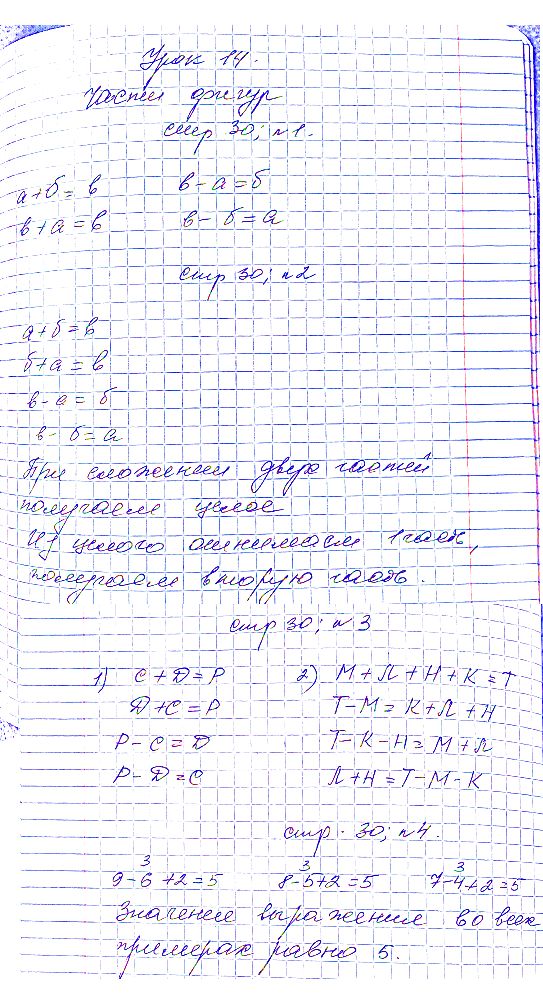 Урок 14.
Части фигур
стр 30; n1.
а+б=в в-а=б
в+а=в в-б=а
стр 30; n2
а+б=в
б+а=в
в-а=б
в-б=а
При сложении двух частей
получаем целое
Из целого отнимаем 1 часть,
получаем вторую часть.
стр 30; n3
1) С+Д=Р 2) М+Л+Н+К=Т
Д+С=Р Т-М=К+Л+Н
Р-С=Д Т-К-Н=М+Л
Р-Д=С Л+Н=Т-М-К
стр. 30; n4.
3 3 3
9-6+2=5 8-5+2=5 7-4+2=5
Значение выражения во всех
примерах равно 5.